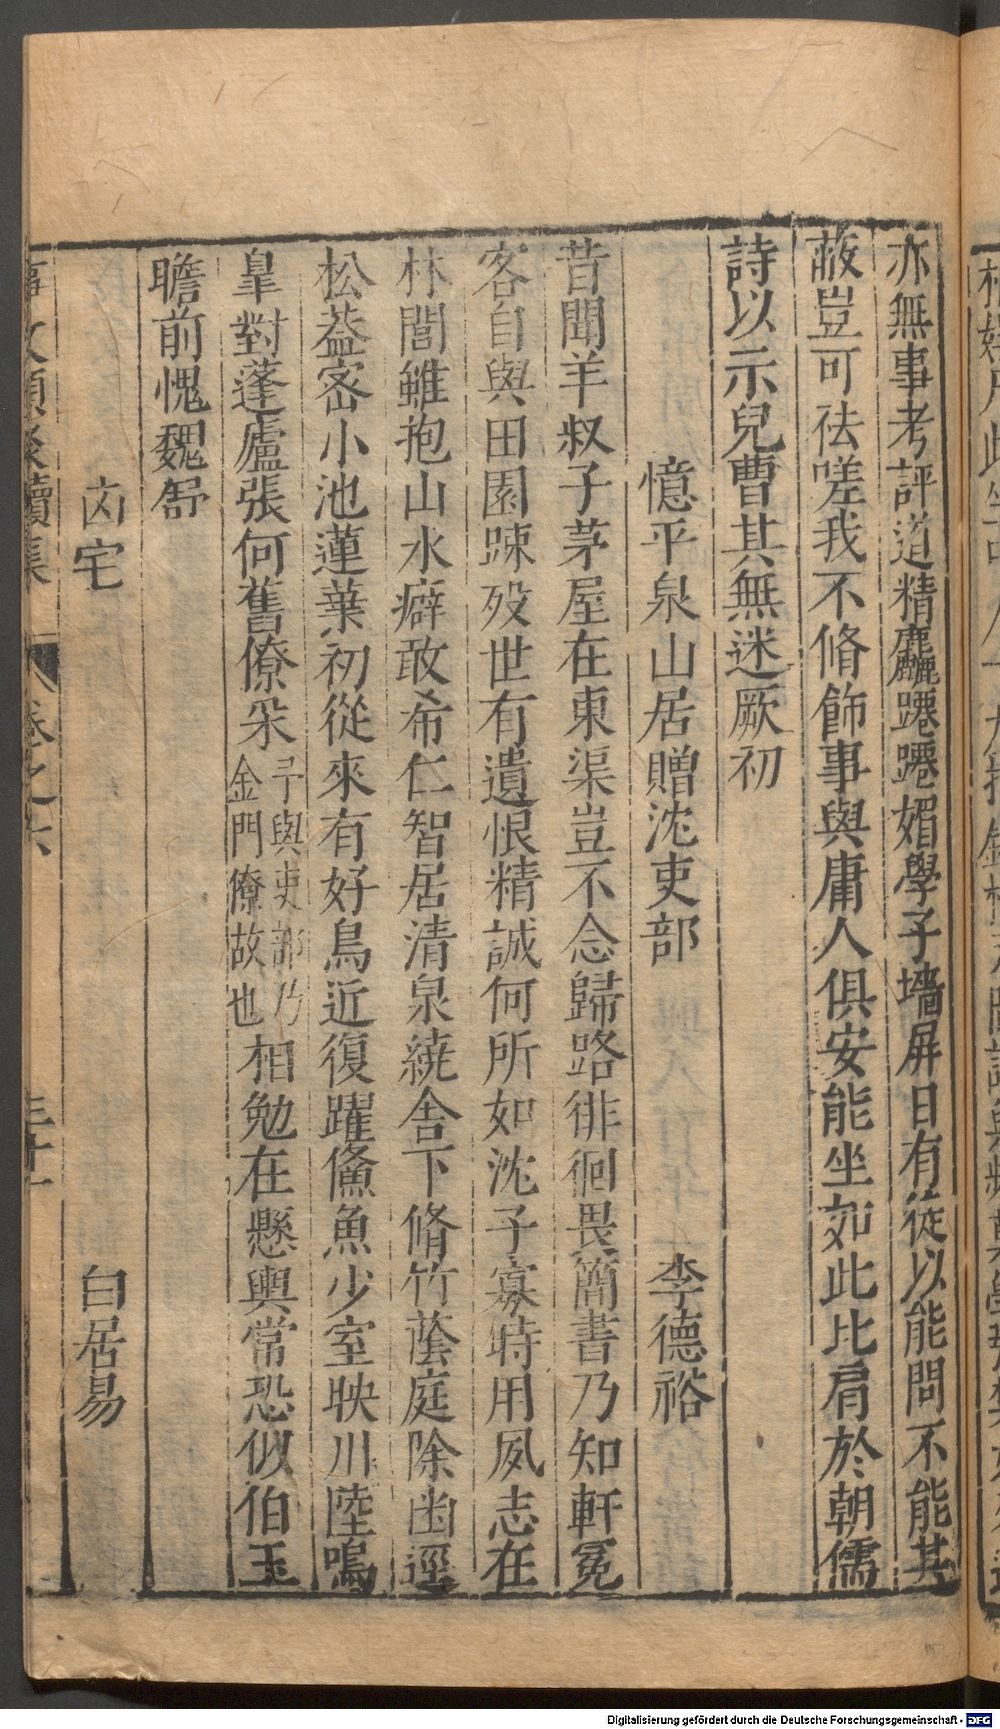 亦無事考評道精麤躚躚媚學子墻屏日有徒以能問不能其
蔽豈可祛嗟我不脩飾事與庸人俱安能坐如此比肩於朝儒
詩以示兒曹其無迷厥初
憶平泉山居贈沈吏部 李德裕
昔聞羊叔子茅屋在東渠豈不念歸路徘徊畏簡書乃知軒冕
客自與田園踈歿世有遺恨精誠何所如沈子寡時用夙志在
林閭雖抱山水癖敢希仁智居清泉繞舍下脩竹蔭庭除幽逕
松葢密小池蓮葉初從來有好鳥近復躍鯈魚少室映川陸鳴
皐對蓬廬張何舊僚寀
予與吏部乃
金門僚故也
相勉在懸輿常恐似伯玉
瞻前愧魏舒
凶宅 白居易
事文類聚續集 卷之六
Digitalisierung gefördert durch die Deutsche Forschungsgemeinschaft - DFG